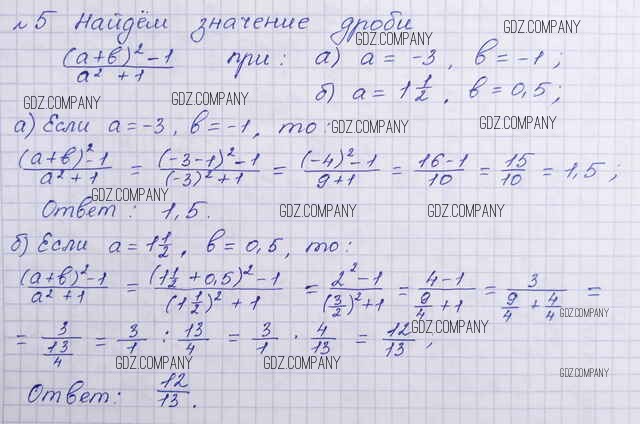 №5 Найдём значение дроби
GDZ.COMPANY
GDZ.COMPANY
((a+b)²-1)/(a²+1) при: а) a = -3, b = -1;
б) a = 1 1/2, b = 0,5;
GDZ.COMPANY
GDZ.COMPANY
а) Если a = -3, b = -1, то:
GDZ.COMPANY
GDZ.COMPANY
((a+b)²-1)/(a²+1) = ((-3-1)²-1)/((-3)²+1) = ((-4)²-1)/(9+1) = (16-1)/10 = 15/10 = 1,5;
GDZ.COMPANY
Ответ: 1,5.
GDZ.COMPANY
GDZ.COMPANY
б) Если a = 1 1/2, b = 0,5, то:
((a+b)²-1)/(a²+1) = ((1 1/2 + 0,5)²-1)/((1 1/2)²+1) = (2²-1)/((3/2)²+1) = (4-1)/(9/4+1) = 3/(9/4+4/4) =
GDZ.COMPANY
GDZ.COMPANY
= 3/(13/4) = 3/1 : 13/4 = 3/1 · 4/13 = 12/13;
GDZ.COMPANY
GDZ.COMPANY
GDZ.COMPANY
Ответ: 12/13.